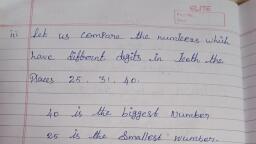 ELITE
iii) Let us compare the numbers which
have different digits in Tenth the
Places 25, 31, 40.
40 is the biggest number
25 is the smallest number.